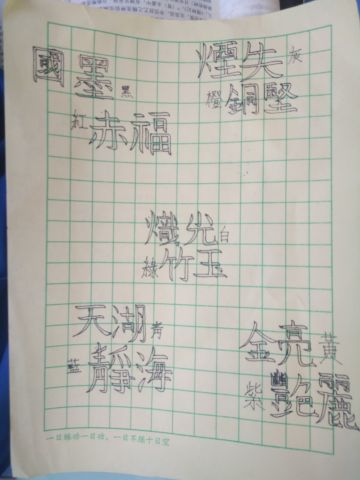 國墨黑
煙失灰
橙銅堅
紅赤福
熾光白
綠竹玉
天湖青
藍靜海
金亮黃
紫艷麗
一日練功一日功，一日不練十日空